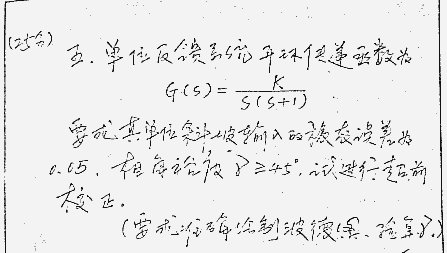 (25分) 五. 单位反馈系统开环传递函数为
G(s) = K / S(S+1)
要求其单位斜坡输入的稳态误差为
0.05, 相角裕度 γ≥45°, 试进行超前
校正.
(要求准确绘制波德图、验算γ.)